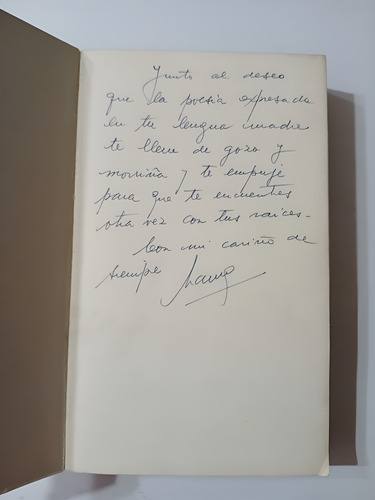 Junto al deseo
que la poesía expresada
en tu lengua madre
te llene de gozo y
morriña y te empuje
para que te encuentres
otra vez con tus raices.
Con mi cariño de
siempre